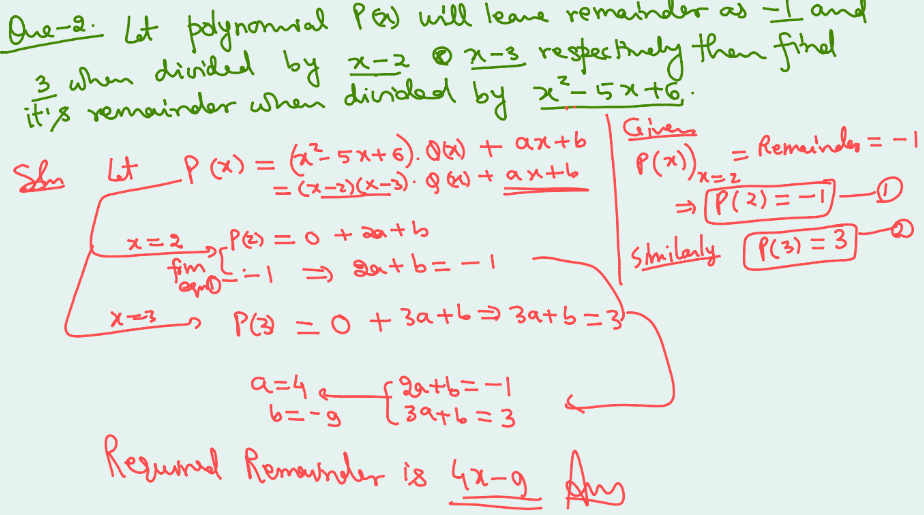 Que-2. Let polynomial P(x) will leave remainder as -1 and
3 when divided by x-2 & x-3 respectively then find
it's remainder when divided by x²-5x+6.
Soln Let P(x) = (x²-5x+6). Q(x) + ax+b
= (x-2)(x-3). Q(x) + ax+b
x=2 P(2) = 0 + 2a+b
from eqn① = -1 ⇒ 2a+b = -1
x=3 P(3) = 0 + 3a+b ⇒ 3a+b = 3
a=4 2a+b=-1
b=-9 3a+b=3
Required Remainder is 4x-9 Ans
Given
P(x))x=2 = Remainder = -1
⇒ P(2) = -1 — ①
Similarly P(3) = 3 — ②